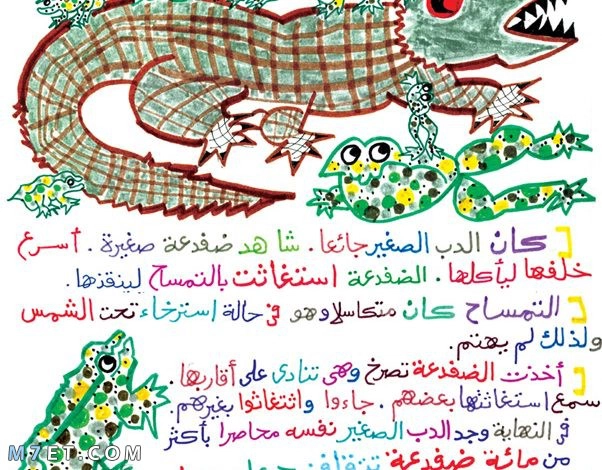 كان الدب الصغير جائعا. شاهد ضفدعة صغيرة. أسرع
خلفها ليأكلها. الضفدعة استغاثت بالتمساح لينقذها.
التمساح كان متكاسلا وهو في حالة استرخاء تحت الشمس
ولذلك لم يهتم.
أخذت الضفدعة تصرخ وهى تنادى على أقاربها.
سمع استغاثتها بعضهم. جاءوا واثتغاثوا بغيرهم.
فى النهاية وجد الدب الصغير نفسه محاصرا بأكثر
من مائة ضفدعة
M7ET.COM